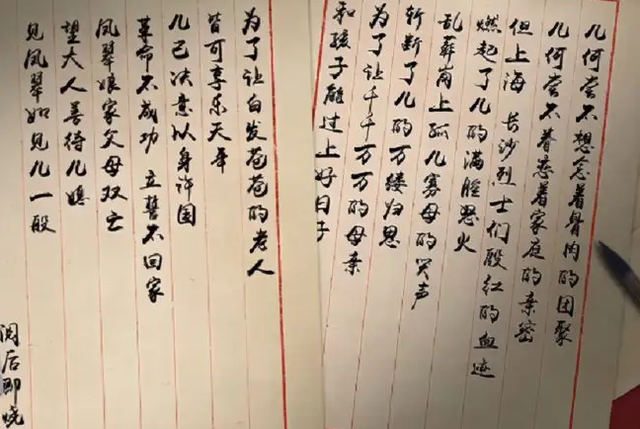 儿何尝不想念着骨肉的团聚
儿何尝不眷恋着家庭的亲密
但上海 长沙烈士们殷红的血迹
燃起了儿的满腔怒火
乱葬岗上孤儿寡母的哭声
斩断了儿的万缕归思
为了让千千万万的母亲
和孩子能过上好日子
为了让白发苍苍的老人
皆可享乐天年
儿已决意以身许国
革命不成功 立誓不回家
凤翠娘家父母双亡
望大人善待儿媳
见凤翠如见儿一般
阅后即烧